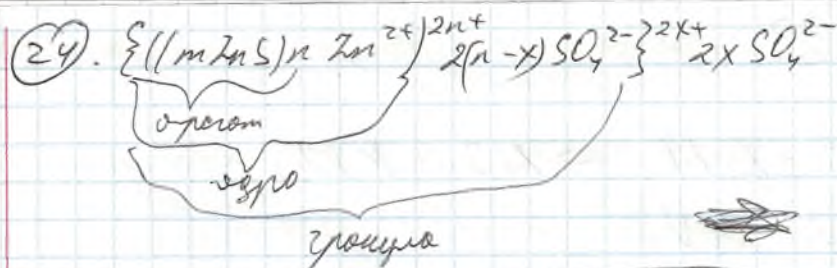 24. {((mZnS)n Zn²⁺)²ⁿ⁺ 2(n-x)SO₄²⁻}²ˣ⁺ 2xSO₄²⁻
агрегат
ядро
гранула